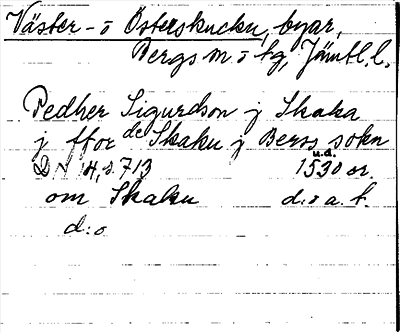 Väster- o Österskucku, byar,
Bergs sn o tg, Jämtl. l.
Pedher Sigurdson j Skaka
j ffor de Skaku j Berss sokn
DN 14, s. 713 u.d. 1530 or.
om Skaku d:o a. t.
d:o